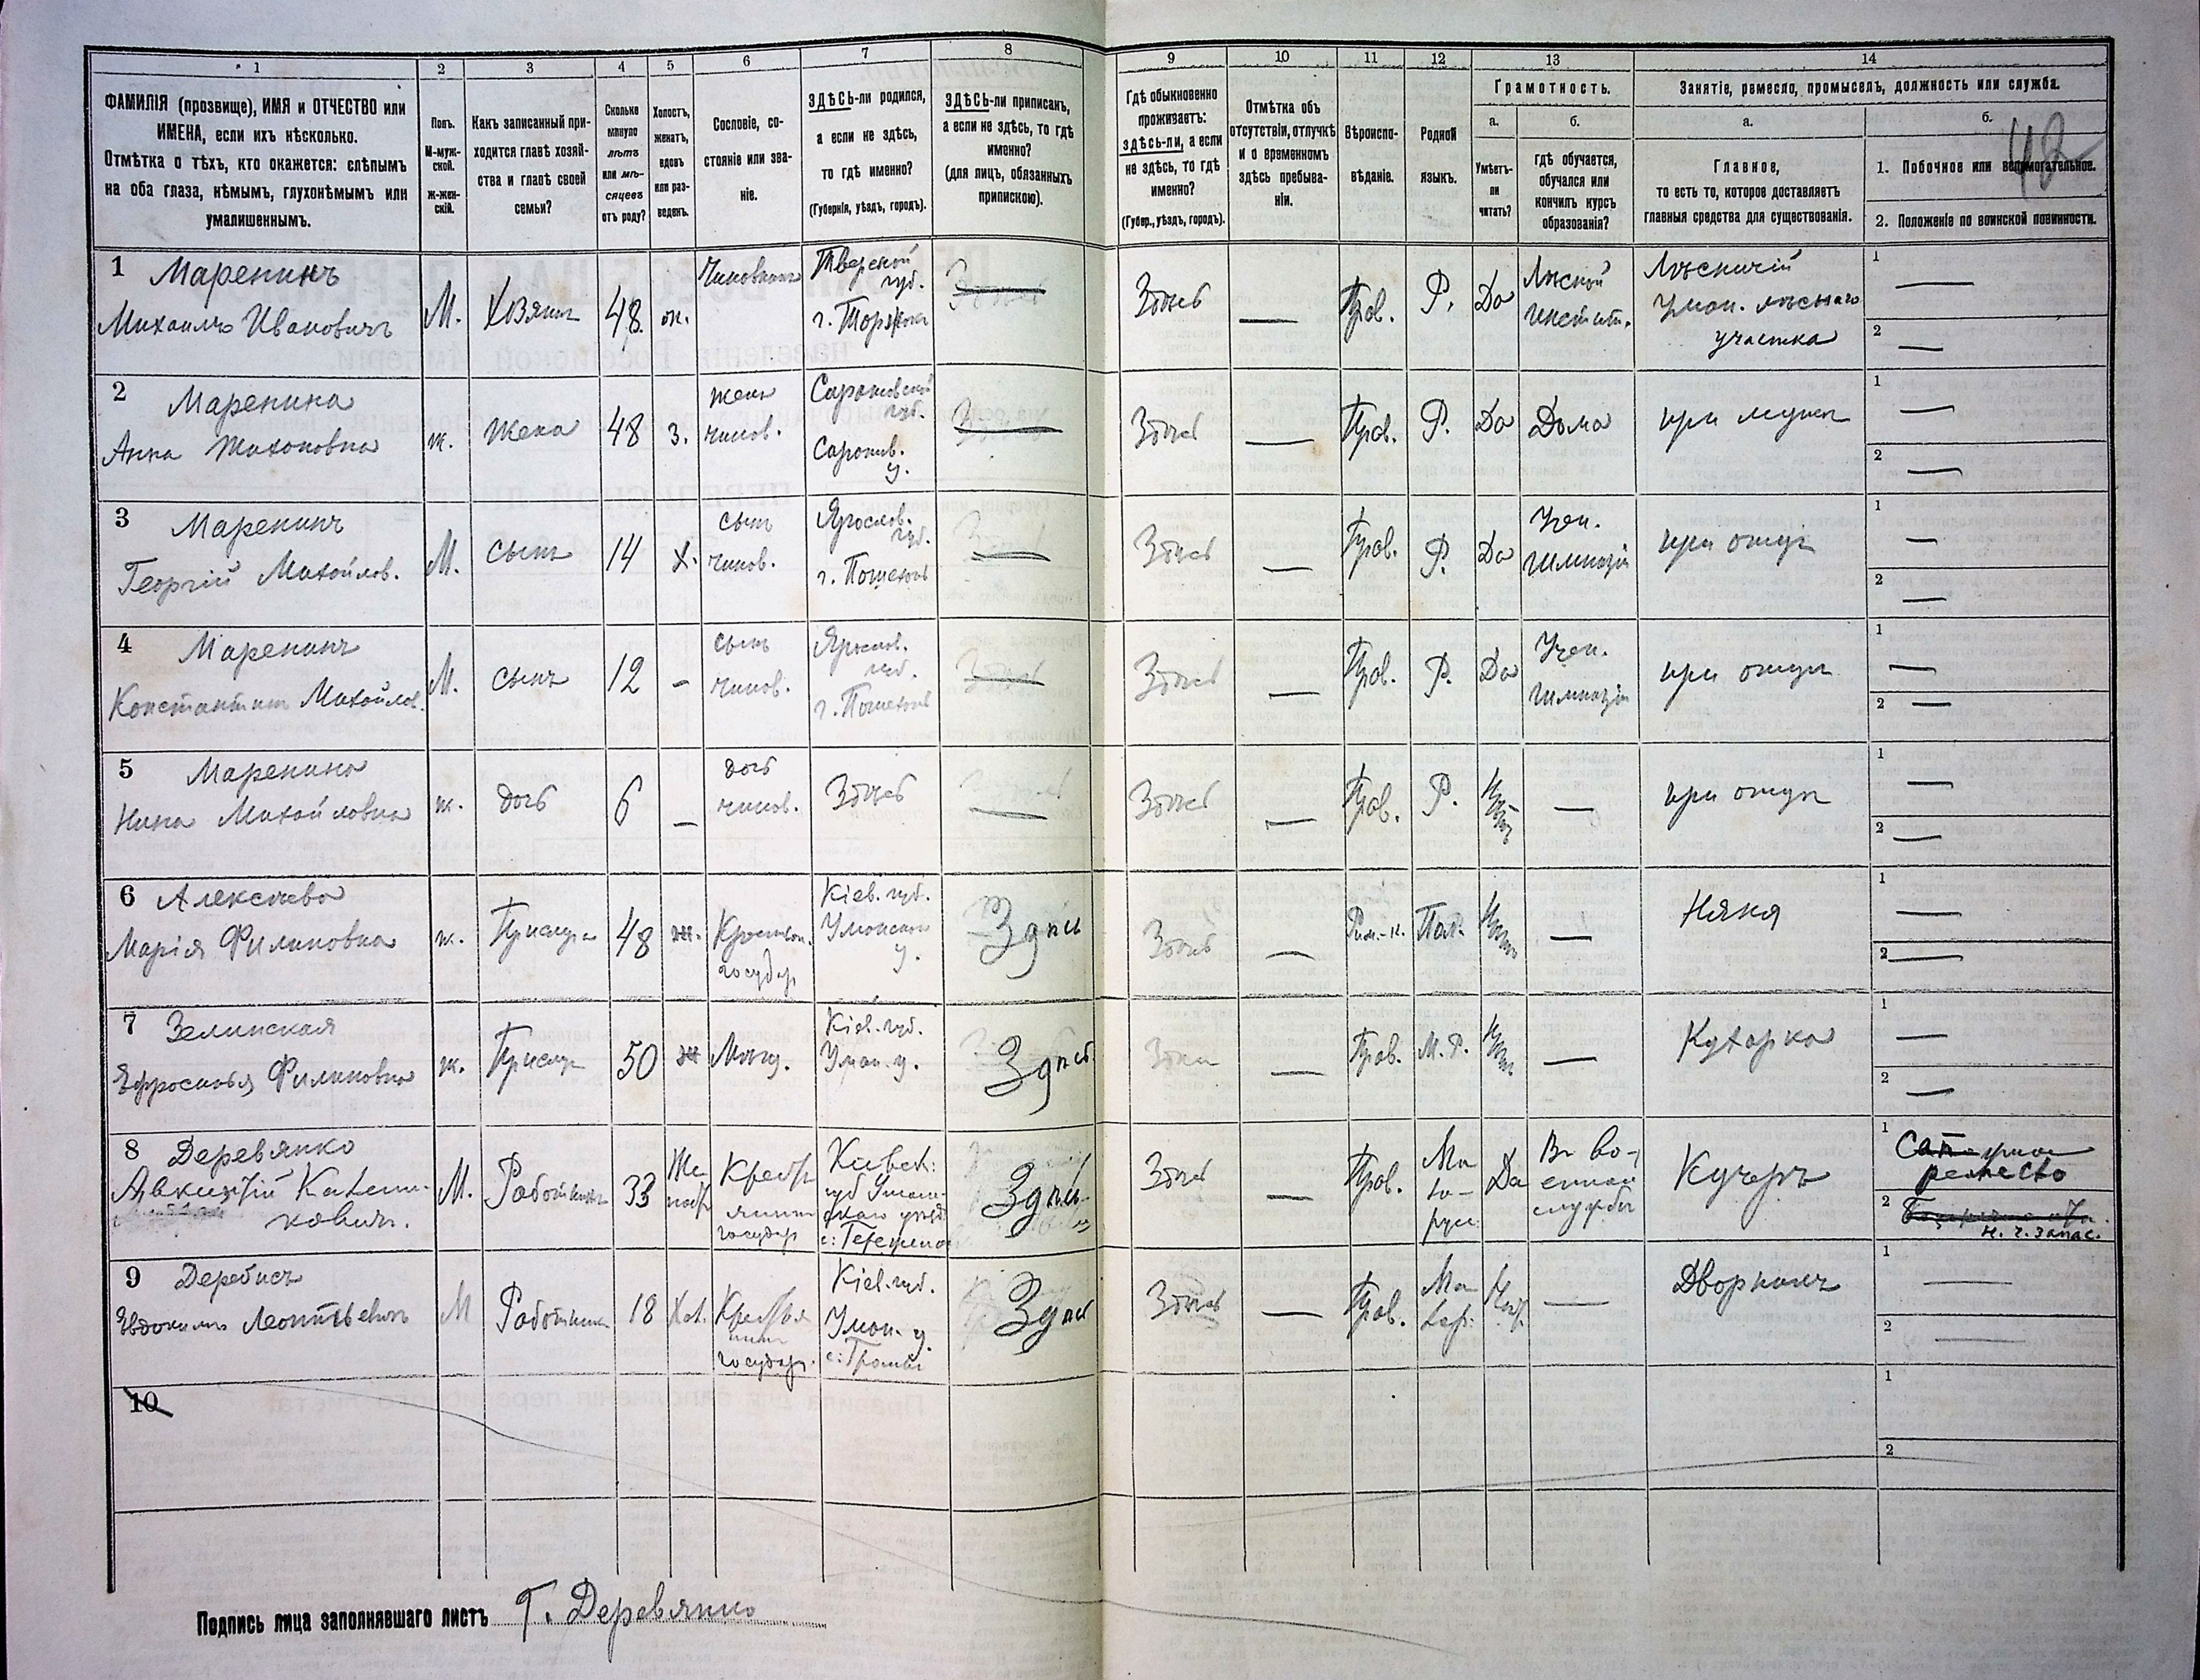 1 2 3 4 5 6 7 8 9 10 11 12 13 14
ФАМИЛІЯ (прозвище), ИМЯ и ОТЧЕСТВО или
ИМЕНА, если ихъ нѣсколько.
Отмѣтка о тѣхъ, кто окажется: слѣпымъ
на оба глаза, нѣмымъ, глухонѣмымъ или
умалишеннымъ.
Полъ.
М-муж-
ской.
Ж-жен-
скій.
Какъ записанный при-
ходится главѣ хозяй-
ства и главѣ своей
семьи?
Сколько
минуло
лѣтъ
или мѣ-
сяцевъ
отъ роду?
Холостъ,
женатъ,
вдовъ
или раз-
веденъ.
Сословіе, со-
стояніе или зва-
ніе.
ЗДѢСЬ-ли родился,
а если не здѣсь,
то гдѣ именно?
(Губернія, уѣздъ, городъ).
ЗДѢСЬ-ли приписанъ,
а если не здѣсь, то гдѣ
именно?
(для лицъ, обязанныхъ
припискою).
Гдѣ обыкновенно
проживаетъ:
здѣсь-ли, а если
не здѣсь, то гдѣ
именно?
(Губер., уѣздъ, городъ).
Отмѣтка объ
отсутствіи, отлучкѣ
и о временномъ
здѣсь пребыва-
ніи.
Вѣроиспо-
вѣданіе.
Родной
языкъ.
Грамотность.
а.
Умѣетъ-
ли
читать?
б.
гдѣ обучается,
обучался или
кончилъ курсъ
образованія?
Занятіе, ремесло, промыселъ, должность или служба.
а.
Главное,
то есть то, которое доставляетъ
главныя средства для существованія.
б.
1. Побочное или вспомогательное.
2. Положеніе по воинской повинности.
1 Маренинъ
Михаилъ Ивановичъ
М.
Хозяин
48
Чиновникъ
Тверской
губ.
г. Торжокъ
Здѣсь
Прав.
Р.
Да
Лѣсной
Институт.
Лѣсничій
Уман. лѣсного
участка
1
2
2 Маренина
Анна Тихоновна
ж.
Жена
48
з.
жена
чинов.
Саратовской
губ.
Саратов.
у.
Здѣсь
Прав.
Р.
Да
Дома
при мужѣ
1
2
3 Маренинъ
Георгій Михайлов.
М.
сынъ
14
х.
сынъ
чинов.
Ярослав.
губ.
г. Пошехонь
Здѣсь
Прав.
Р.
Да
Учен.
гимназіи
при отцѣ
1
2
4 Маренинъ
Константинъ Михайлов.
М.
сынъ
12
-
сынъ
чинов.
Ярослав.
губ.
г. Пошехонь
Здѣсь
Прав.
Р.
Да
Учен.
гимназіи
при отцѣ
1
2
5 Маренина
Нина Михайловна
ж.
дочь
6
дочь
чинов.
Здѣсь
Здѣсь
Прав.
Р.
Нѣтъ
при отцѣ
1
2
6 Алексѣева
Марія Филиповна
ж.
Прислуга
48
Крестьян.
государ
Кіев. губ.
Уманскаго
у.
Здѣсь
Здѣсь
Рим.-к.
Пол.
Нѣтъ
Няня
1
2
7 Зелинская
Ефросинья Филиповна
ж.
Прислуг
50
Мѣщ.
Кіев. губ.
Уман. у.
Здѣсь
Здѣсь
Прав.
М. Р.
Нѣтъ
Кухарка
1
2
8 Деревянко
М.
Работникъ
33
Женатъ
Крестьянинъ
государ
Кіевск.
губ Уман-
скаго уѣзд
Здѣсь
Здѣсь
Прав.
Мало-
рус
Да
Въ во-
енной
службѣ
Кучеръ
1 Сапожное
ремесло
2
н. ч. запас.
9 Деребисъ
Евдокимъ Леонтьевичъ
М
Работникъ
18
Хол.
Крестья
нинъ
государ.
Кіев. губ.
Уман. у.
Здѣсь
Здѣсь
Прав.
Нѣтъ
Дворникъ
1
2
10
1
2
Подпись лица заполнявшаго листъ Г. Деревянко